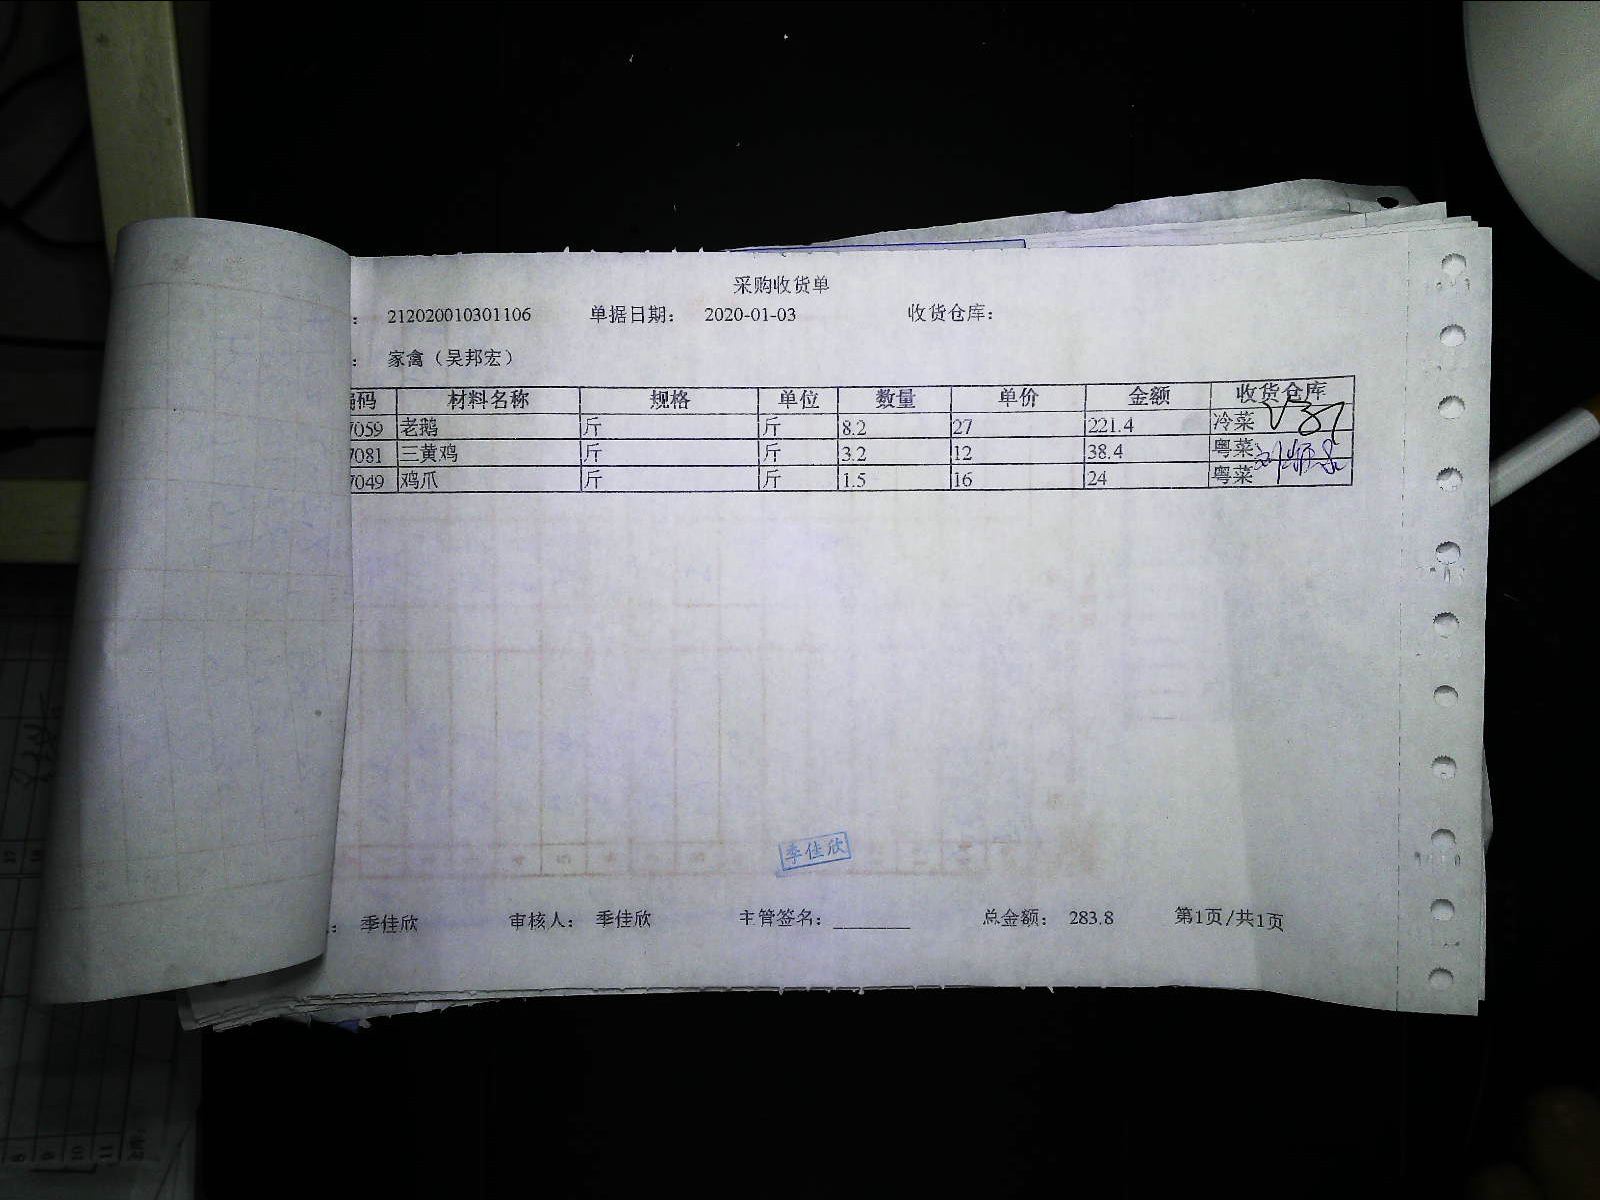 采购收货单
： 212020010301106 单据日期： 2020-01-03 收货仓库：
： 家禽（吴邦宏）
编码 材料名称 规格 单位 数量 单价 金额 收货仓库
7059 老鹅 斤 斤 8.2 27 221.4 冷菜
7081 三黄鸡 斤 斤 3.2 12 38.4 粤菜
7049 鸡爪 斤 斤 1.5 16 24 粤菜
季佳欣
： 季佳欣 审核人： 季佳欣 主管签名：________ 总金额： 283.8 第1页/共1页